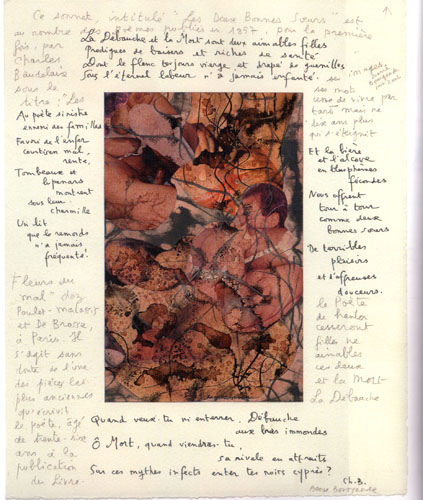 Ce sonnet, intitulé "Les Deux Bonnes Sœurs" est
au nombre des poèmes publiés en 1857, pour la première
fois, par
Charles
Baudelaire
sous le
titre : Les
La Débauche et la Mort sont deux aimables filles
Prodigues de baisers et riches de santé
Dont le flanc toujours vierge et drapé de guenilles
Sous l'éternel labeur n'a jamais enfanté.
Au poète sinistre
ennemi des familles
Favori de l'enfer
courtisan mal
renté,
Tombeaux et
lupanars
montrent
sous leur
charmille
Un lit
que le remords
n'a jamais
fréquenté.
Fleurs du
mal" chez
Poulet-Malassis
et De Broise,
à Paris. Il
s'agit sans
doute de l'une
des pièces les
plus anciennes
qu'écrivit
le poète, âgé
de trente-six
ans à la
publication
du livre.
ses mots
cesse de vivre par
mais ne
plus
qui s'éteignit
Et la bière
et l'alcove
en blasphèmes
fécondes
Nous offrent
tour à tour
comme deux
bonnes sœurs
De terribles
plaisirs
et d'affreuses
douceurs.
le Poète
de
cesseront
filles ne
aimables
ces deux
et la Mort
La Débauche
Quand veux-tu m'enterrer, Débauche
aux bras immondes
Ô Mort, quand viendras-tu
sa rivale en attraits
Sur ces myrthes infects enter tes noirs cyprès ?
Ch. B.